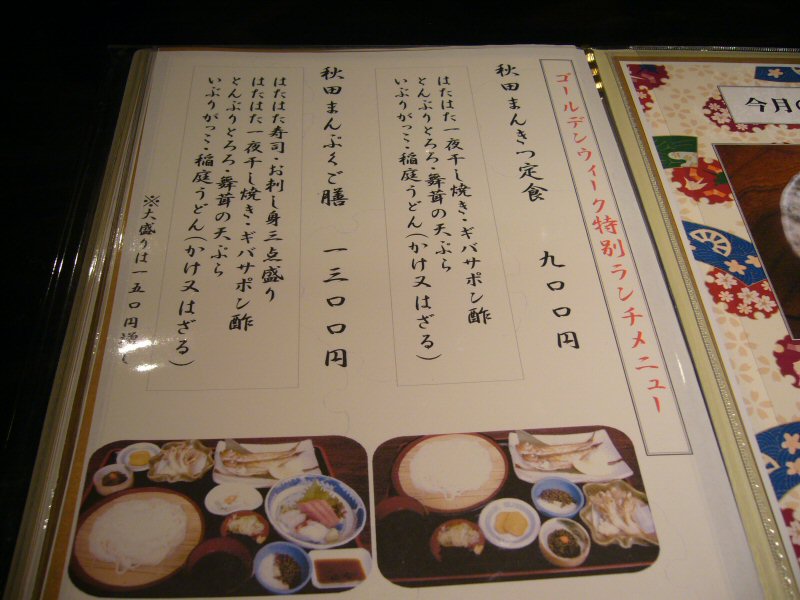 ゴールデンウィーク特別ランチメニュー
秋田まんきつ定食　九〇〇円
はたはた一夜干し焼き・ギバサポン酢
とんぶりとろろ・舞茸の天ぷら
いぶりがっこ・稲庭うどん（かけ又はざる）
秋田まんぷくご膳　一三〇〇円
はたはた寿司・お刺し身三点盛り
はたはた一夜干し焼き・ギバサポン酢
とんぶりとろろ・舞茸の天ぷら
いぶりがっこ・稲庭うどん（かけ又はざる）
※大盛りは一五〇円増し
今月の